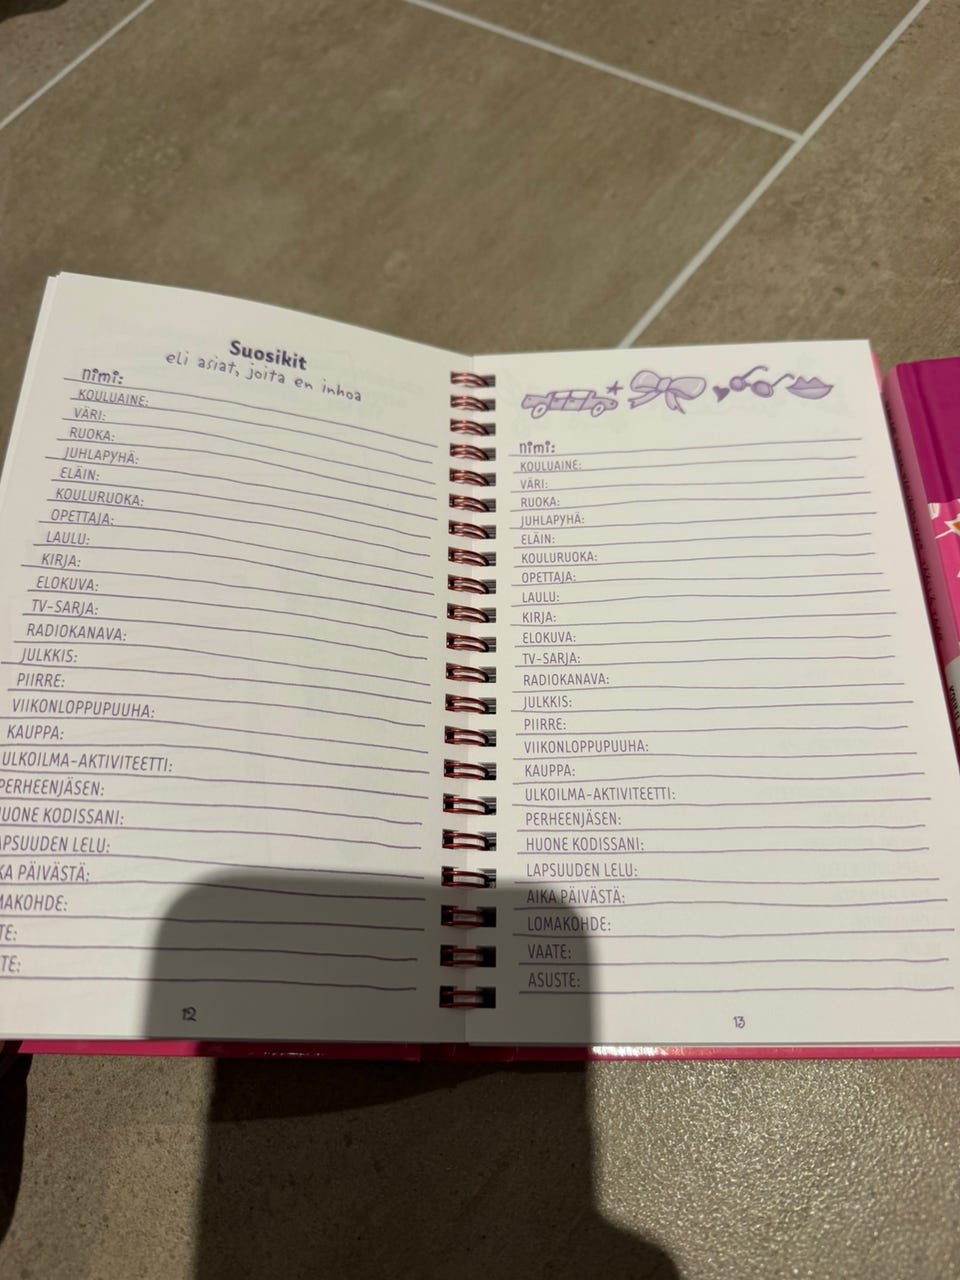 Suosikit
eli asiat, joita en inhoa
nimi:
KOULUAINE:
VÄRI:
RUOKA:
JUHLAPYHÄ:
ELÄIN:
KOULURUOKA:
OPETTAJA:
LAULU:
KIRJA:
ELOKUVA:
TV-SARJA:
RADIOKANAVA:
JULKKIS:
PIIRRE:
VIIKONLOPPUPUUHA:
KAUPPA:
ULKOILMA-AKTIVITEETTI:
PERHEENJÄSEN:
HUONE KODISSANI:
APSUUDEN LELU:
KA PÄIVÄSTÄ:
MAKOHDE:
TE:
TE:
12
nimi:
KOULUAINE:
VÄRI:
RUOKA:
JUHLAPYHÄ:
ELÄIN:
KOULURUOKA:
OPETTAJA:
LAULU:
KIRJA:
ELOKUVA:
TV-SARJA:
RADIOKANAVA:
JULKKIS:
PIIRRE:
VIIKONLOPPUPUUHA:
KAUPPA:
ULKOILMA-AKTIVITEETTI:
PERHEENJÄSEN:
HUONE KODISSANI:
LAPSUUDEN LELU:
AIKA PÄIVÄSTÄ:
LOMAKOHDE:
VAATE:
ASUSTE:
13